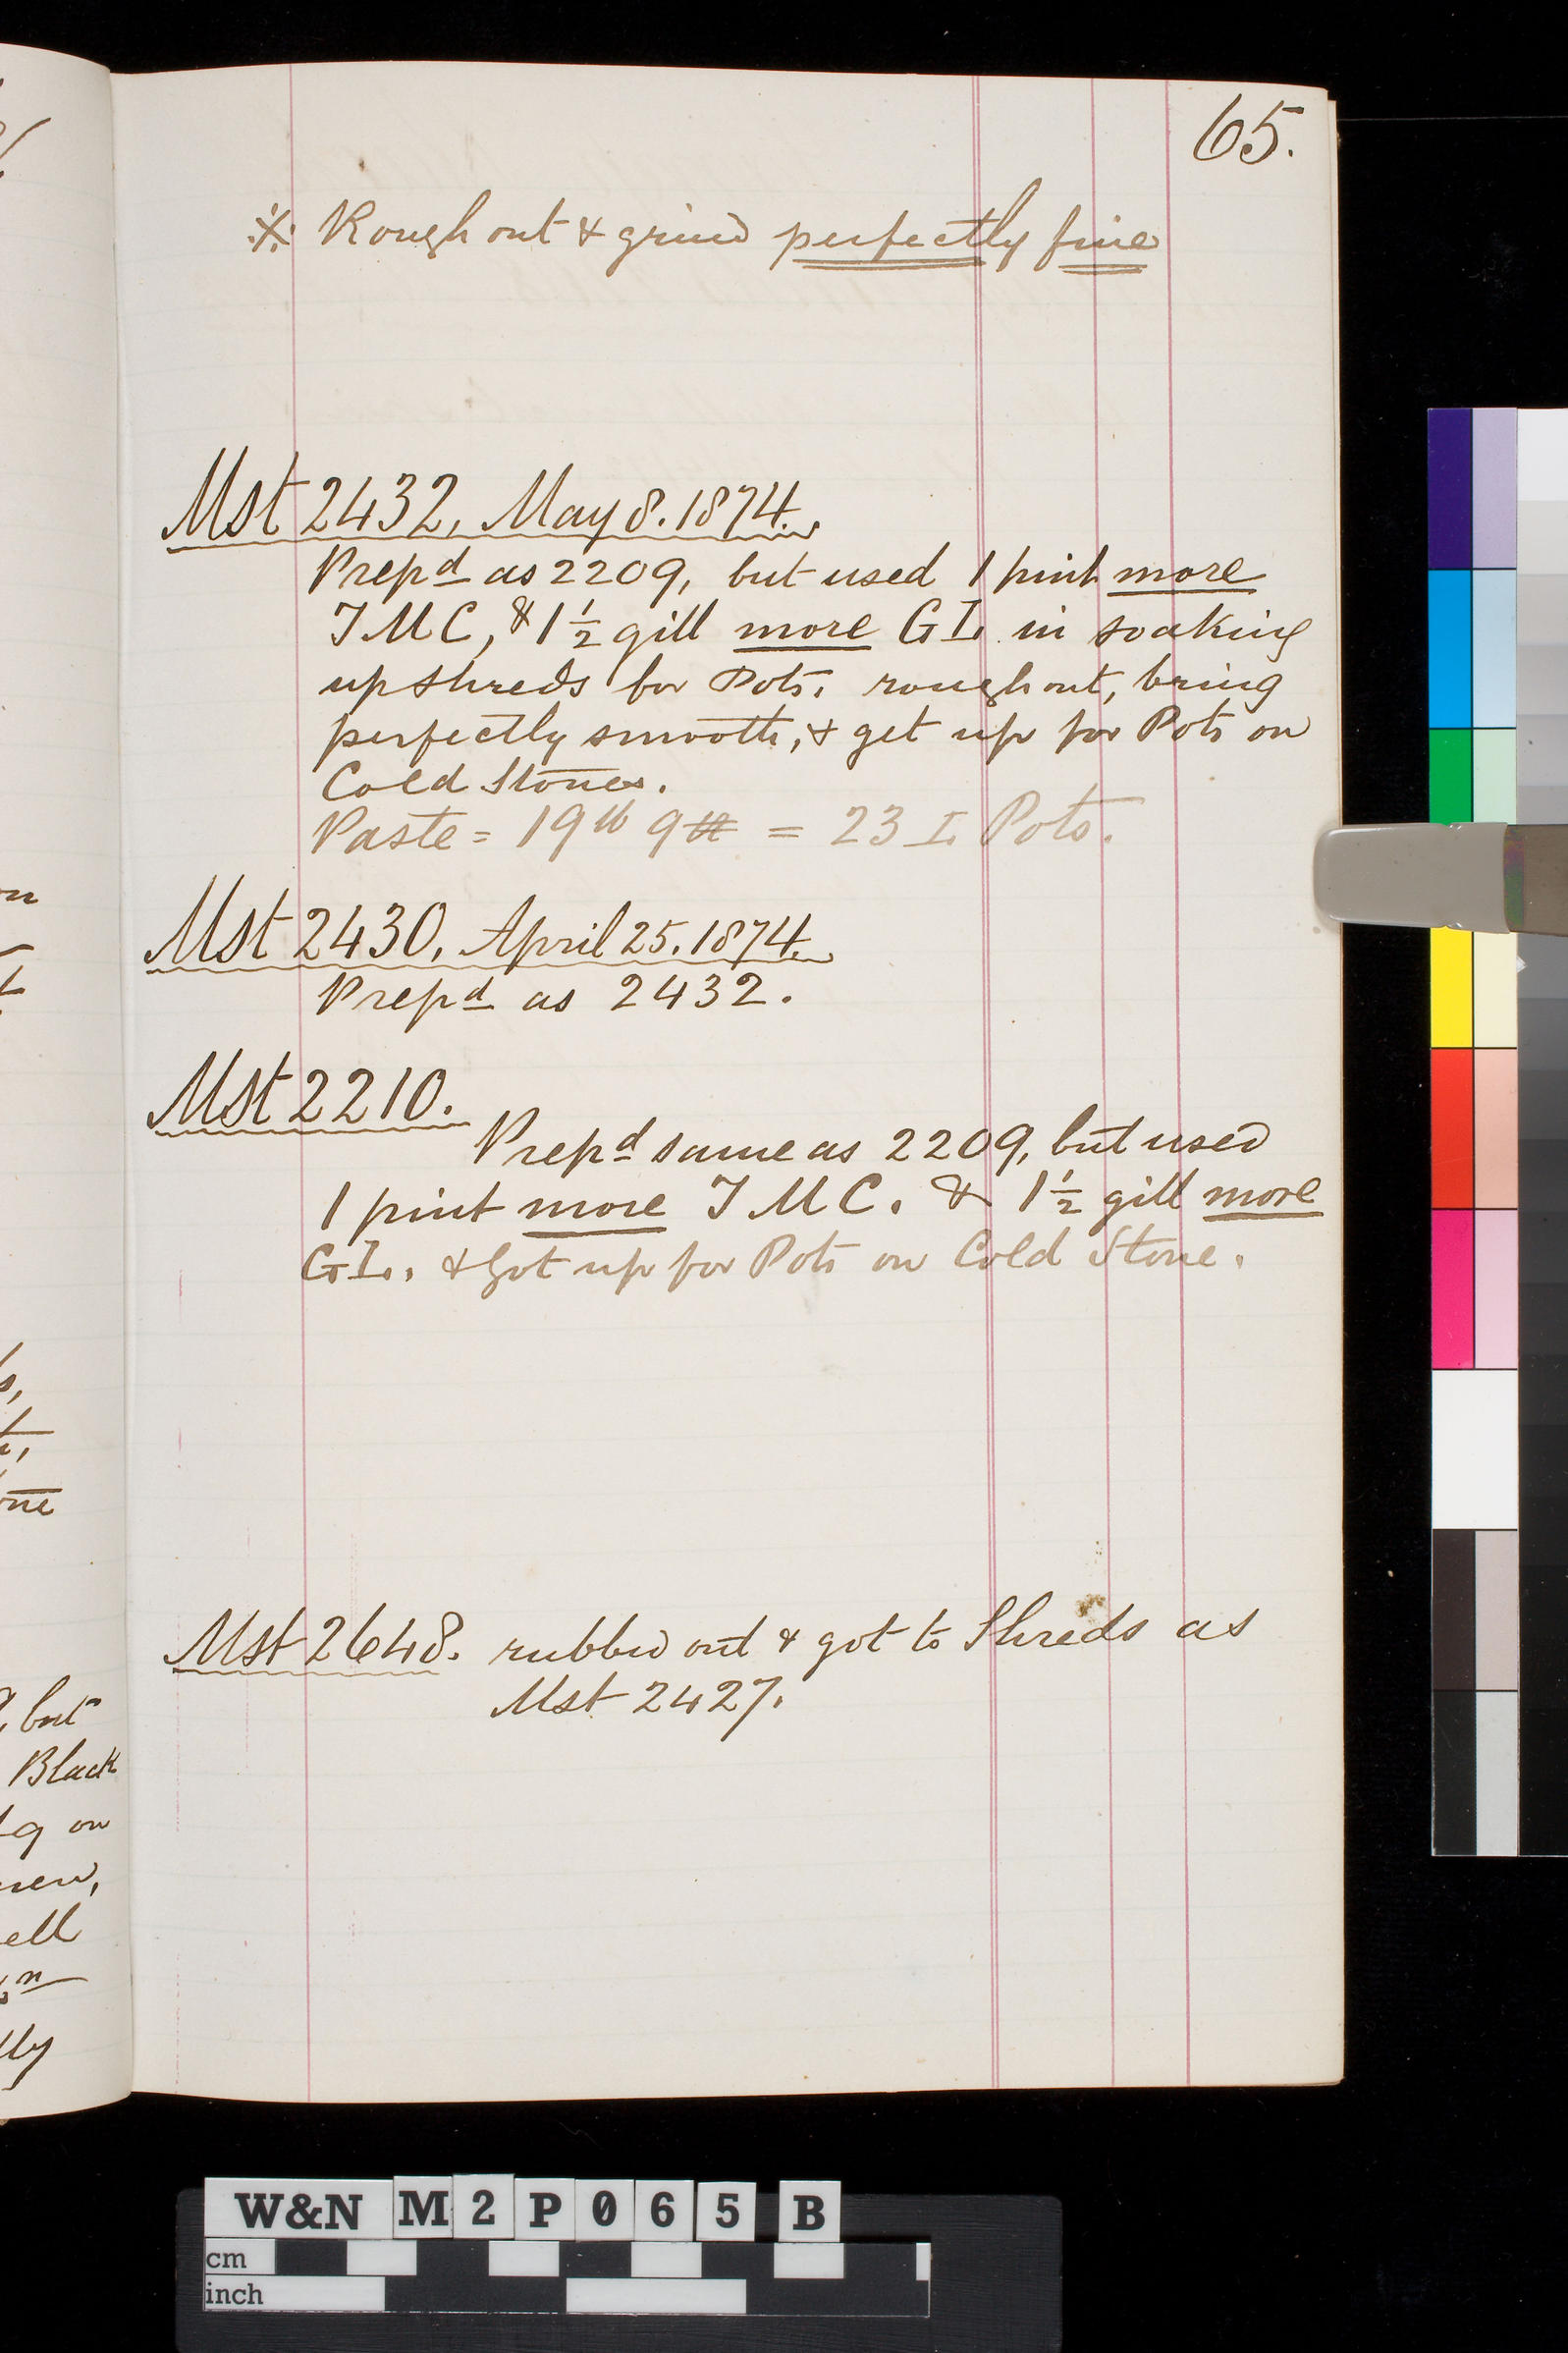 65.
※ Rough out & grind perfectly fine
Mst 2432, May 8. 1874.
Prepd as 2209, but used 1 pint more
TMC, & 1½ gill more GI. in soaking
up shreds for Pots. rough out, bring
perfectly smooth, & get up for Pots on
Cold Stones.
Paste = 19 lb 9 = 23 I. Pots.
Mst 2430, April 25. 1874.
Prepd as 2432.
Mst 2210.
Prepd same as 2209, but used
1 pint more TMC. & 1½ gill more
GI., & Got up for Pots on Cold Stone.
Mst 2648. rubbed out & got to Shreds as
Mst 2427.
on
, but
Black
on
ell
lly
W&N M2P065 B
cm
inch